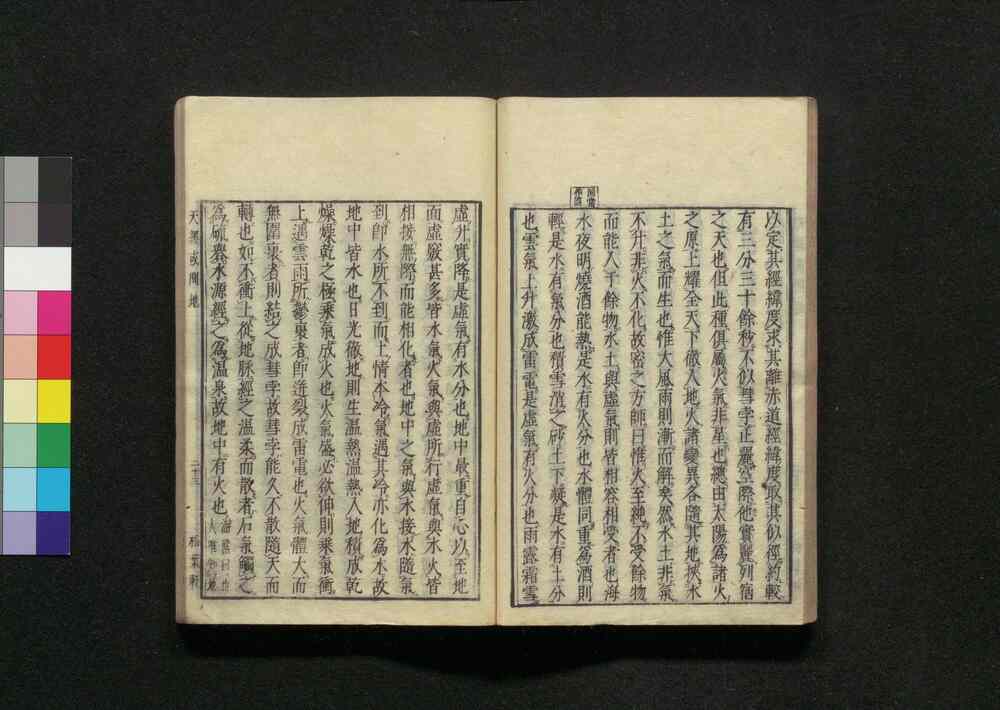 以定其經緯度求其離赤道經緯度取其似徑約較
有三分三十餘秒不似彗孛正麗空際他實麗列宿
之天也但此種俱屬火氣非星也總由太陽為諸火
之原上耀全天下徹入地火諸變異各隨其地挾水
土之氣而生也惟大風雨則漸而解矣然水土非氣
不升非火不化故密之方師曰惟火至純不受餘物
而能入于餘物水土與虛氣則皆相容相受者也海
水夜明燒酒能熱是水有火分也水體同重為酒則
輕是水有氣分也積雪消之砂土下凝是水有土分
也雲氣上升激成雷電是虛氣有火分也雨露霜雪
虛升實降是虛氣有水分也地中最重自心以至地
面虛竅甚多皆水氣火氣與虛所行虛氣與水火皆
相撥無際而能相化者也地中之氣與水接水隨氣
到即水所不到而上情本冷氣遇其冷亦化為水故
地中皆水也日光徹地則生溫熱溫熱入地積成乾
燥燥乾之極乘氣成火也火氣盛必欲伸則乘氣衝
上適雲雨所鬱裹者即迸裂成雷電也火氣體大而
無圍裹者則結之成彗孛故彗孛能久不散隨天而
轉也如不衝上從地脉經之溫柔而散者石氣觸之
為硫礬水源經之為溫泉故地中有火也
天經或問 地
二十三